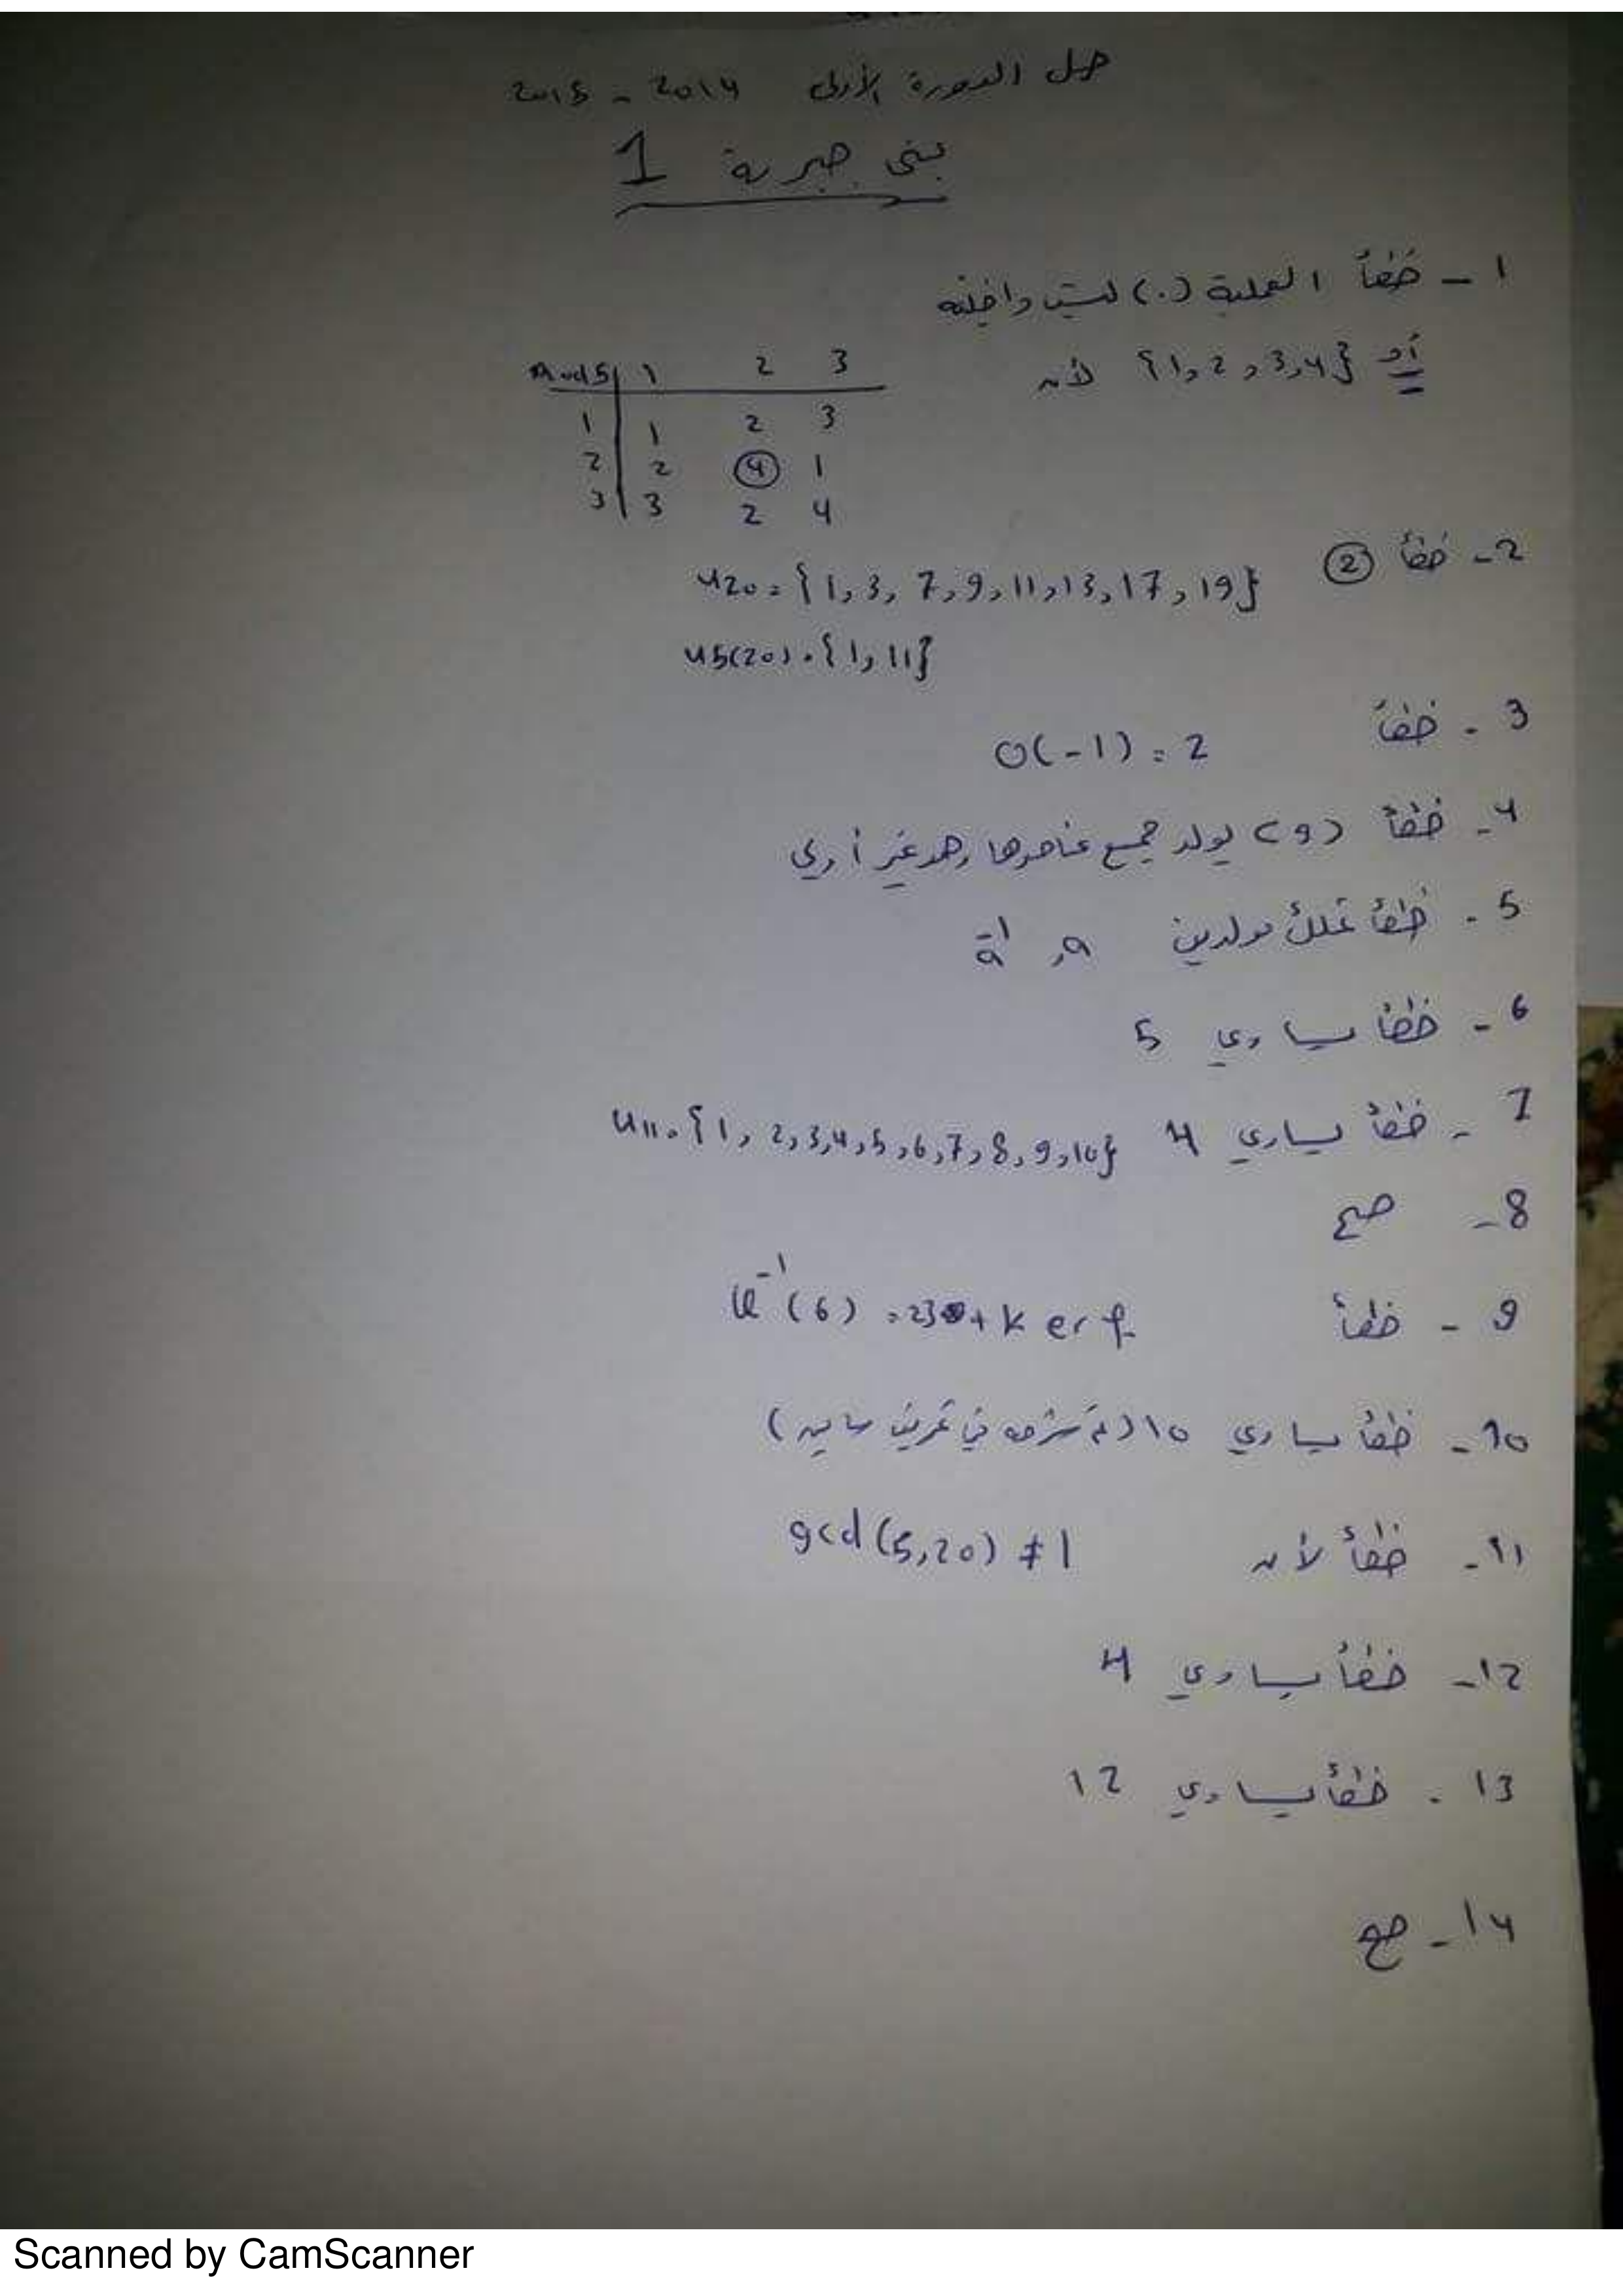 حل الدورة الأولى 2014 - 2015
بنى جبرية 1
1 - خطأ العملية (.) ليست داخلية
أو {1, 2, 3, 4} لأن
Mod5 1 2 3
1 1 2 3
2 2 4 1
3 3 2 4
2- خطأ 2
u20 = {1, 3, 7, 9, 11, 13, 17, 19}
u5(20) = {1, 11}
3 - خطأ O(-1) = 2
4- خطأ (9) يولد جميع عناصرها وهو غير أولي
5 - خطأ تملك مولدين a, a⁻¹
6 - خطأ يساوي 5
7 - خطأ يساوي 4 u11 = {1, 2, 3, 4, 5, 6, 7, 8, 9, 10}
8 - صح
9 - خطأ φ⁻¹(6) = 23 + ker φ
10 - خطأ يساوي 10 (تم شرحه في تمرين سابق)
11 - خطأ لأن gcd(5,20) ≠ 1
12 - خطأ يساوي 4
13 - خطأ يساوي 12
14 - صح
Scanned by CamScanner